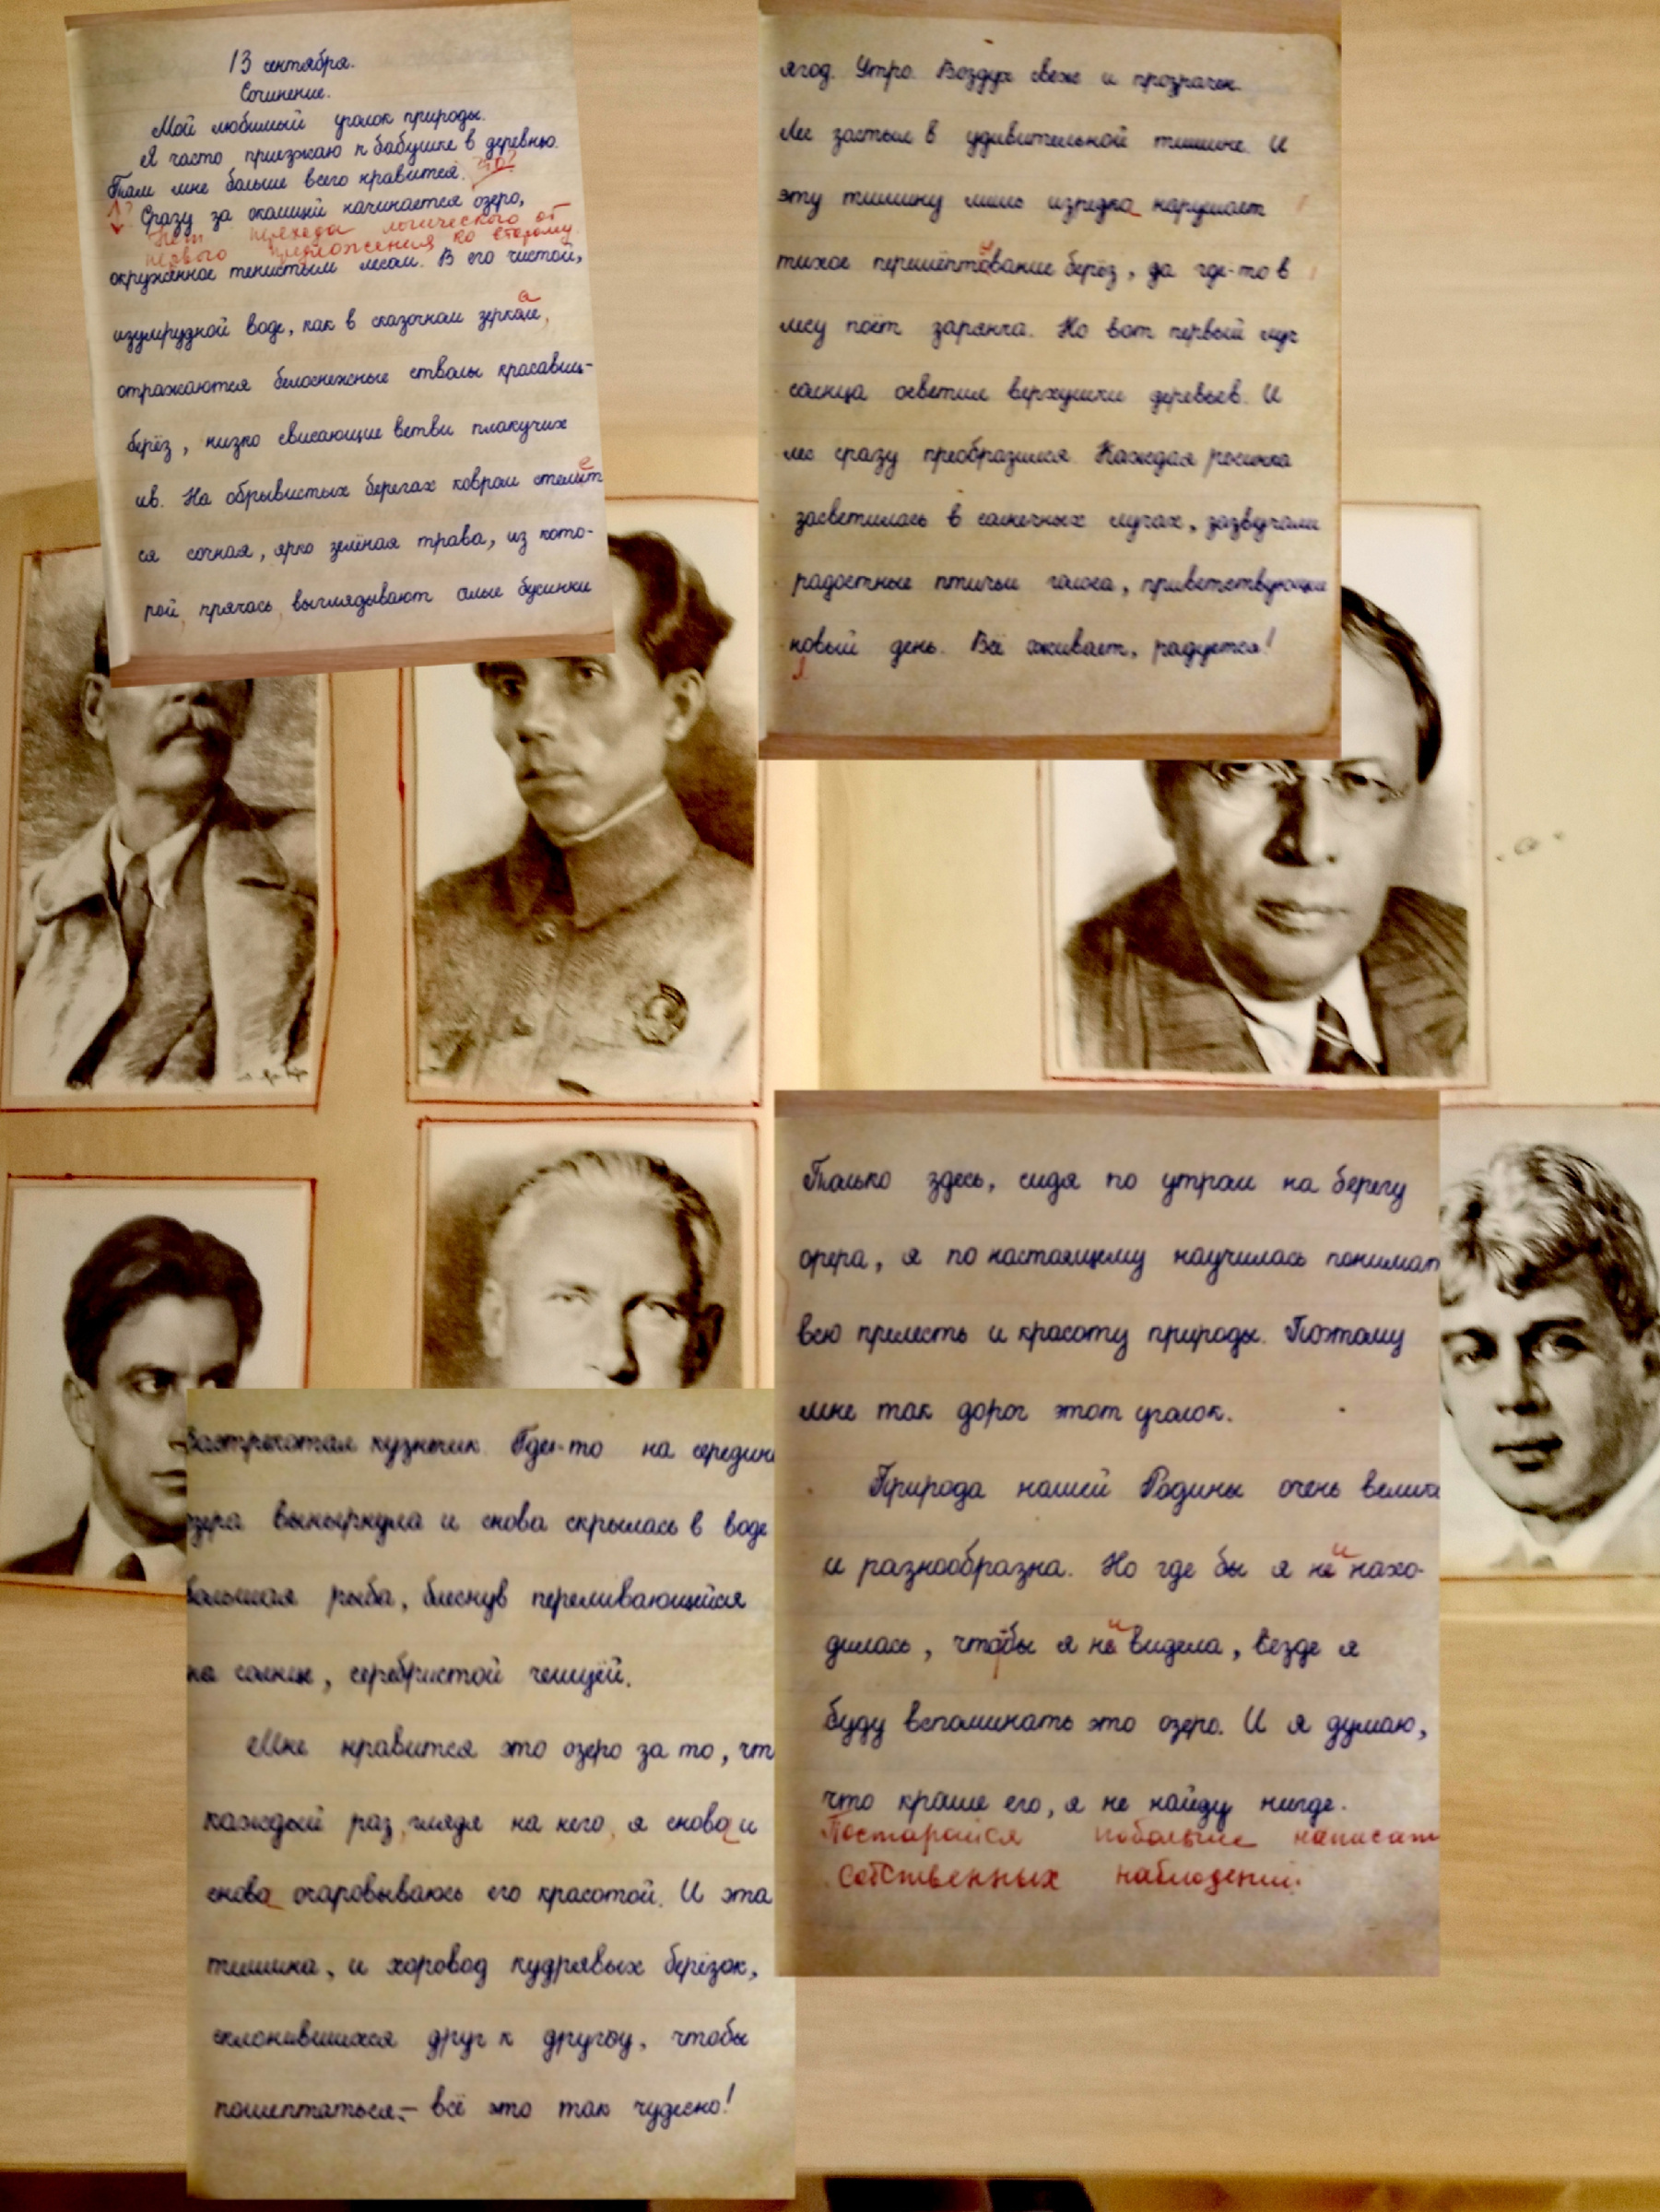 13 сентября.
Сочинение.
Мой любимый уголок природы.
Я часто приезжаю к бабушке в деревню.
Там мне больше всего нравится. что?
Сразу за околицей начинается озеро,
Нет перехода логического от
первого предложения ко второму
окружённое тенистым лесом. В его чистой,
изумрудной воде, как в сказочном зеркале,
а
отражаются белоснежные стволы красавиц-
берёз, низко свисающие ветви плакучих
ив. На обрывистых берегах ковром стелит
е
ся сочная, ярко зелёная трава, из кото-
рой, прячась, выглядывают алые бусинки
ягод. Утро. Воздух свеж и прозрачен.
Лес застыл в удивительной тишине. И
эту тишину лишь изредка нарушает
тихое перешёптование берёз, да где-то в
лесу поёт зарянка. Но вот первый луч
солнца осветил верхушки деревьев. И
лес сразу преобразился. Каждая росинка
засветилась в солнечных лучах, зазвучали
радостные птичьи голоса, приветствующие
новый день. Всё оживает, радуется!
Застрекотал кузнечик. Где-то на середин
озера вынырнула и снова скрылась в воде
большая рыба, блеснув переливающейся
на солнце, серебристой чешуёй.
Мне нравится это озеро за то, чт
каждый раз, глядя на него, я снова и
снова очаровываюсь его красотой. И эта
тишина, и хоровод кудрявых берёзок,
склонившихся друг к другу, чтобы
пошептаться,– всё это так чудесно!
Только здесь, сидя по утрам на берегу
озера, я по настоящему научилась понимат
всю прелесть и красоту природы. Поэтому
мне так дорог этот уголок.
Природа нашей Родины очень велика
и разнообразна. Но где бы я не нахо-
и
дилась, чтобы я не видела, везде я
и
буду вспоминать это озеро. И я думаю,
что краше его, я не найду нигде.
Постарайся побольше написат
собственных наблюдений.